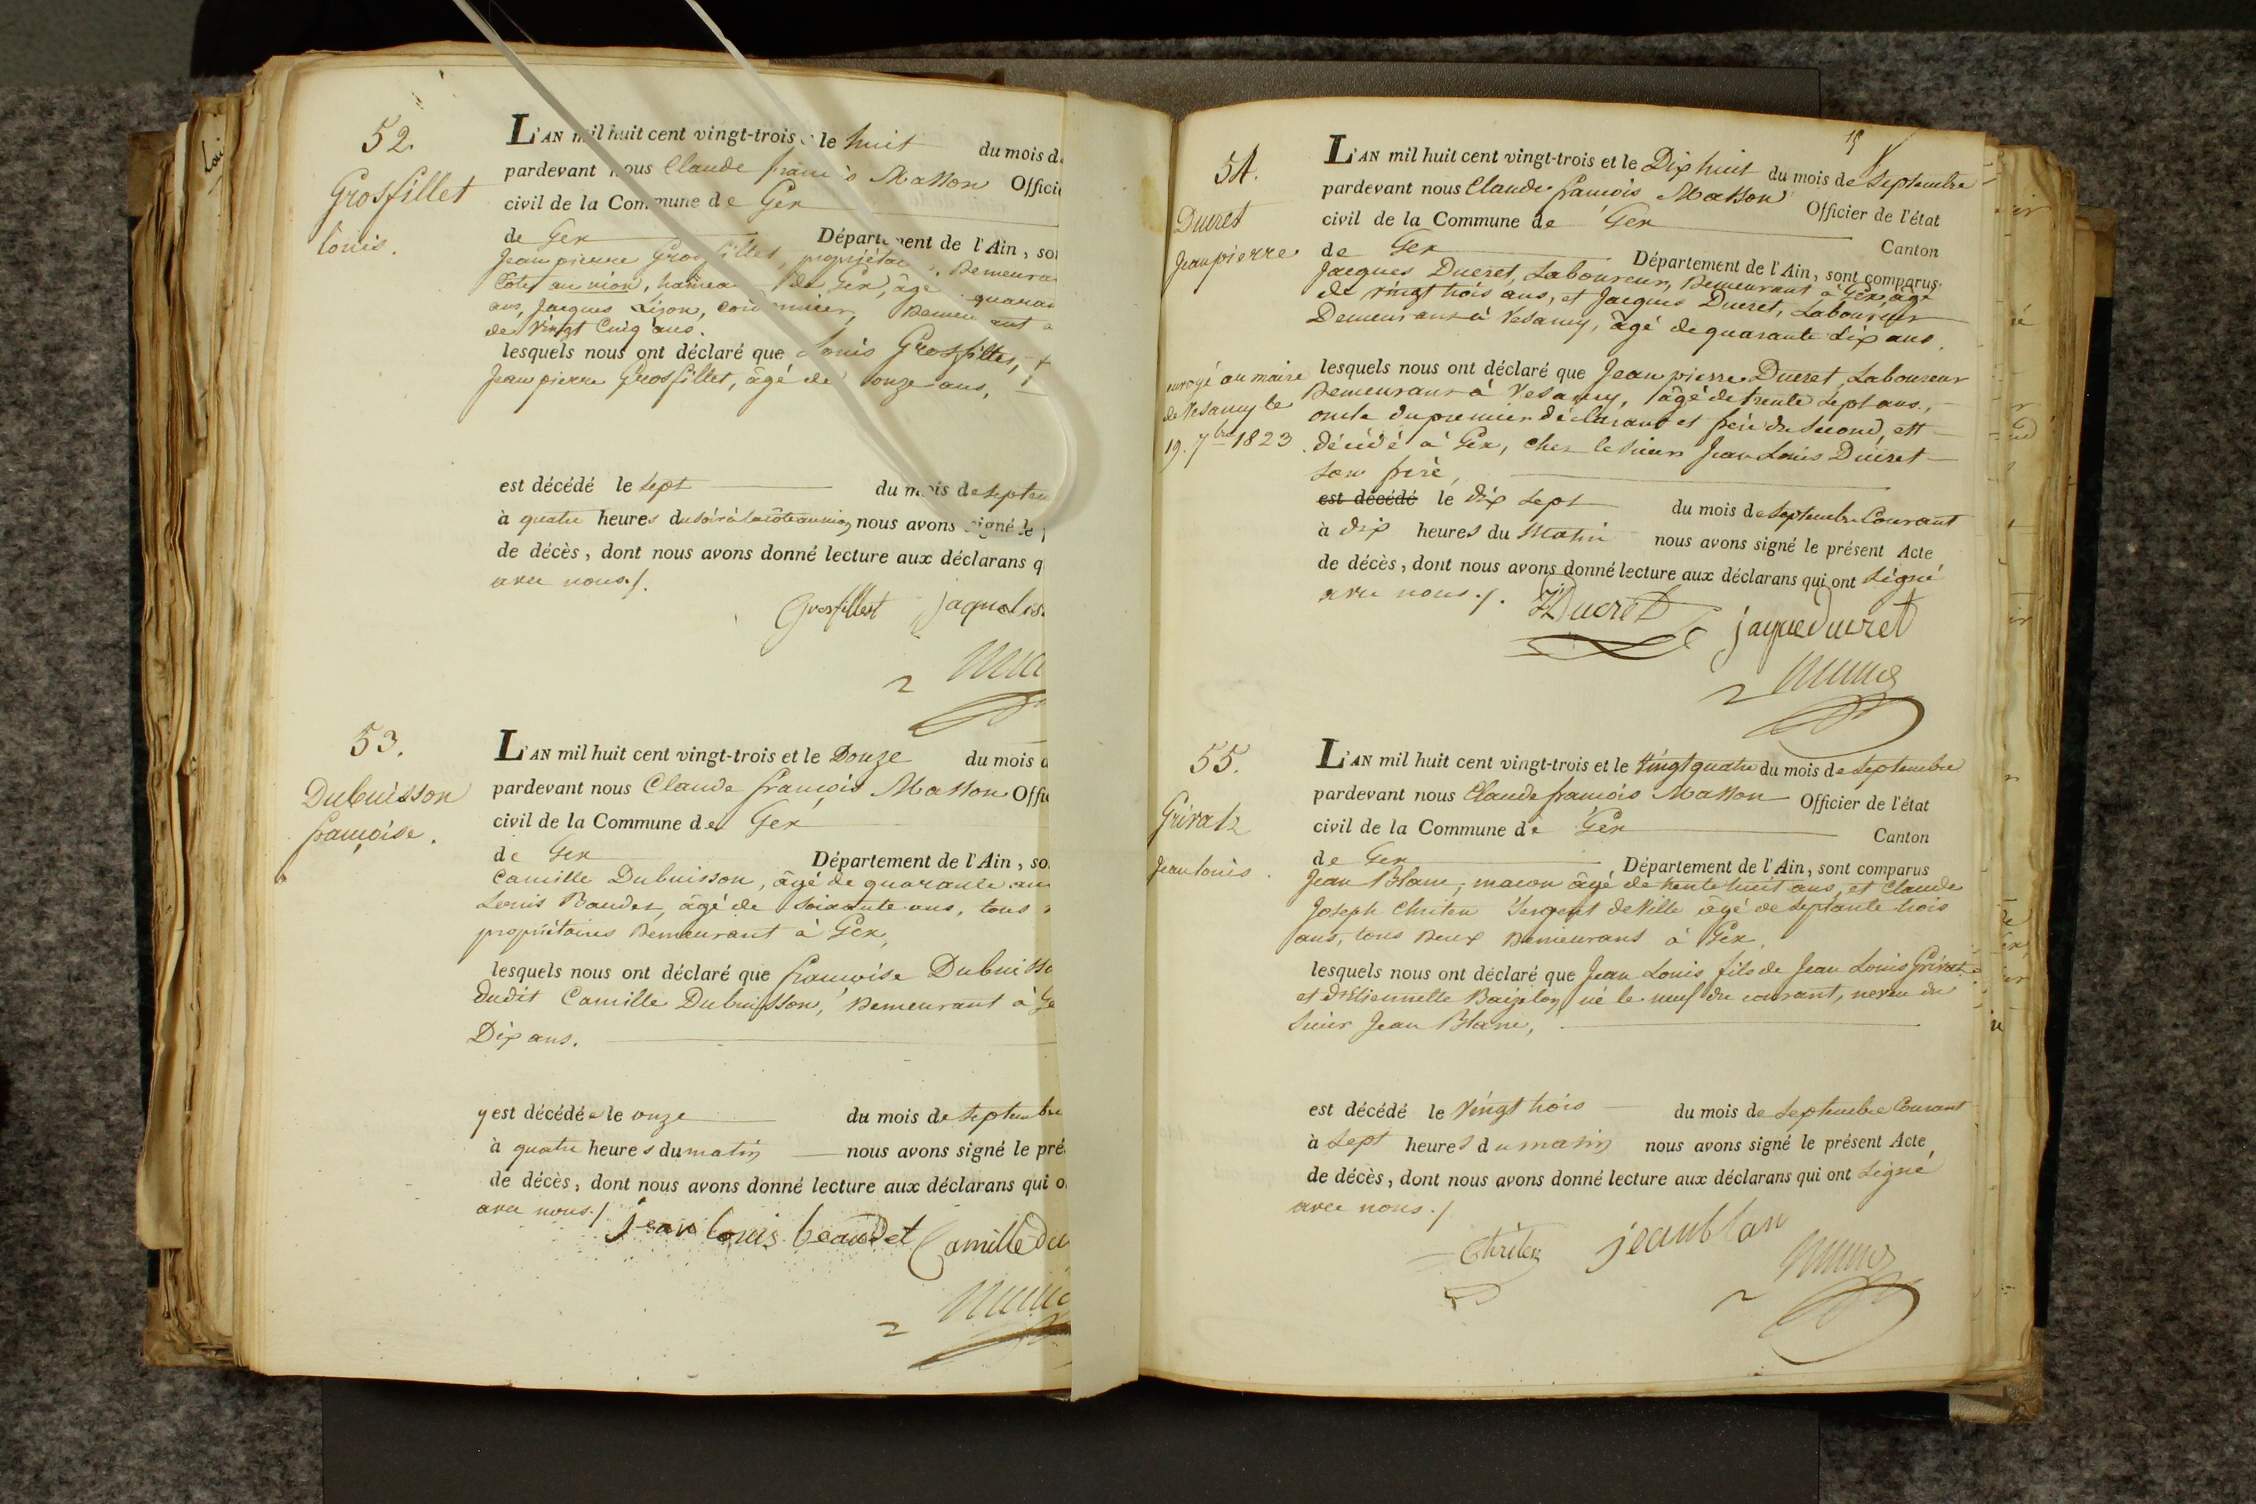 52.
Grosfillet
louis.
L'AN mil huit cent vingt-trois le huit du mois d
pardevant nous Claude françois Masson Offici
civil de la Commune de Gex
de Gex Département de l'Ain, so
Jean pierre Grosfillet, propriétai Demeura
Côte au nion, hamea de Gex, âgé quaran
ans, Jacques Lizon, cordonnier, Demeurant a
de Vingt Cinq ans.
lesquels nous ont déclaré que Louis Grosfillet,
Jean pierre Grosfillet, âgé de onze ans,
est décédé le sept du mois de septem
à quatre heures du soir à la côte au nion, nous avons signé le
de décès, dont nous avons donné lecture aux déclarans q
avec nous./.
Grosfillet jaque
53.
Dubuisson
françoise.
L'AN mil huit cent vingt-trois et le Douze du mois d
pardevant nous Claude françois Masson Offi
civil de la Commune de Gex
de Gex Département de l'Ain, so
Camille Dubuisson, âgé de quarante an
Louis Baudet, âgé de soixante ans, tous
propriétaires Demeurant à Gex,
lesquels nous ont déclaré que françoise Dubuisso
dudit Camille Dubuisson, Demeurant à Ge
Dix ans.
y est décédée le onze du mois de septembre
à quatre heures du matin nous avons signé le pré
de décès, dont nous avons donné lecture aux déclarans qui o
avec nous./
jean louis beaudet Camille du
54.
Ducret
Jean pierre
envoyé au maire
de Vesancy le
19. 7bre 1823.
L'AN mil huit cent vingt-trois et le Dix huit du mois de septembre
pardevant nous Claude françois Masson Officier de l'état
civil de la Commune de Gex Canton
de Gex Département de l'Ain, sont comparus
Jacques Ducret, Laboureur, Demeurant à Gex, âgé
de vingt trois ans, et Jacques Ducret, Laboureur
Demeurant à Vesancy, âgé de quarante dix ans.
lesquels nous ont déclaré que Jean pierre Ducret, Laboureur
Demeurant à Vesancy, âgé de trente sept ans,
oncle du premier déclarant et frère du second, est
décédé à Gex, chez le sieur Jean Louis Ducret
son frère,
est décédé le dix sept du mois de septembre Courant
à dix heures du Matin nous avons signé le présent Acte
de décès, dont nous avons donné lecture aux déclarans qui ont signé
avec nous./.
Ducret jaque Ducret
55.
Grivatz
Jean louis.
L'AN mil huit cent vingt-trois et le Vingt quatre du mois de septembre
pardevant nous Claude françois Masson Officier de l'état
civil de la Commune de Gex Canton
de Gex Département de l'Ain, sont comparus
Jean Blanc, maçon âgé de trente huit ans, et Claude
Joseph Chriten Sergent de Ville âgé de septante trois
ans, tous Deux Demeurans à Gex,
lesquels nous ont déclaré que Jean Louis fils de Jean Louis Grivat
et d'Estiennette né le neuf du courant, neveu du
sieur Jean Blanc,
est décédé le Vingt trois du mois de septembre Courant
à sept heures du matin nous avons signé le présent Acte
de décès, dont nous avons donné lecture aux déclarans qui ont signé
avec nous./
Chriten jean blan